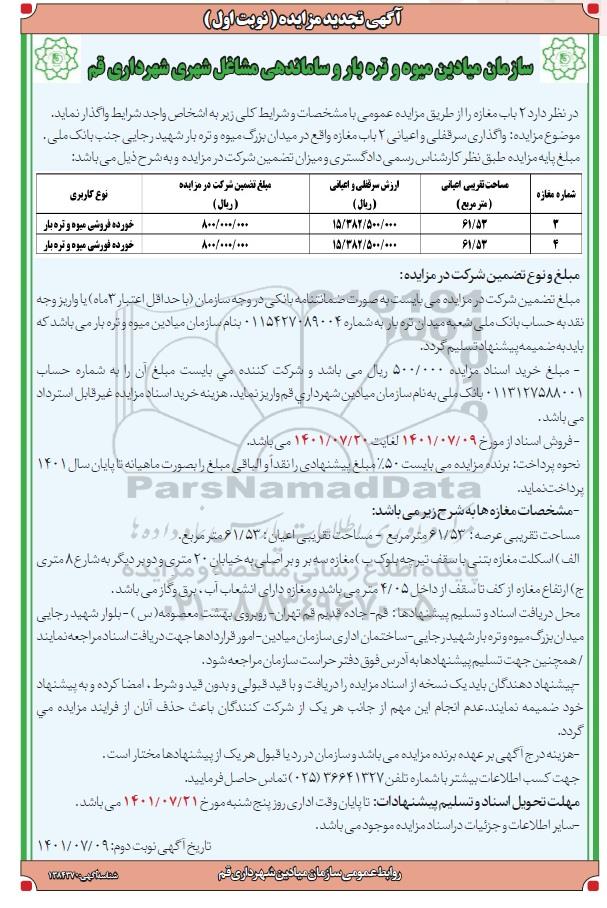 آگهی تجدید مزایده ( نوبت اول )
سازمان میادین میوه و تره بار و ساماندهی مشاغل شهری شهرداری قم
در نظر دارد ۲ باب مغازه را از طریق مزایده عمومی با مشخصات و شرایط کلی زیر به اشخاص واجد شرایط واگذار نماید.
موضوع مزایده: واگذاری سرقفلی و اعیانی ۲ باب مغازه واقع در میدان بزرگ میوه و تره بار شهید رجایی جنب بانک ملی .
مبلغ پایه مزایده طبق نظر کارشناس رسمی دادگستری و میزان تضمین شرکت در مزایده و به شرح ذیل می باشد:
شماره مغازه | مساحت تقریبی اعیانی (متر مربع) | ارزش سرقفلی و اعیانی (ریال) | مبلغ تضمین شرکت در مزایده (ریال) | نوع کاربری
۳ | ۶۱/۵۳ | ۱۵/۳۸۲/۵۰۰/۰۰۰ | ۸۰۰/۰۰۰/۰۰۰ | خورده فروشی میوه و تره بار
۴ | ۶۱/۵۳ | ۱۵/۳۸۲/۵۰۰/۰۰۰ | ۸۰۰/۰۰۰/۰۰۰ | خورده فورشی میوه و تره بار
مبلغ و نوع تضمین شرکت در مزایده :
مبلغ تضمین شرکت در مزایده می بایست به صورت ضمانتنامه بانکی در وجه سازمان (با حداقل اعتبار ۳ماه) یا واریز وجه
نقد به حساب بانک ملی شعبه میدان تره بار به شماره ۰۱۱۵۴۲۷۰۸۹۰۰۴ بنام سازمان میادین میوه و تره بار می باشد که
باید به ضمیمه پیشنهاد تسلیم گردد.
- مبلغ خرید اسناد مزایده ۵۰۰/۰۰۰ ریال می باشد و شرکت کننده می بایست مبلغ آن را به شماره حساب
۰۱۱۳۱۲۷۵۸۸۰۰۱ بانک ملی به نام سازمان میادین شهرداری قم واریز نماید. هزینه خرید اسناد مزایده غیر قابل استرداد
می باشد .
- فروش اسناد از مورخ ۱۴۰۱/۰۷/۰۹ لغایت ۱۴۰۱/۰۷/۲۰ می باشد.
نحوه پرداخت: برنده مزایده می بایست ۵۰٪ مبلغ پیشنهادی را نقداً و الباقی مبلغ را بصورت ماهیانه تا پایان سال ۱۴۰۱
پرداخت نماید.
-مشخصات مغازه ها به شرح زیر می باشد:
مساحت تقریبی عرصه: ۶۱/۵۳ متر مربع - مساحت تقریبی اعیان: ۶۱/۵۳ متر مربع.
الف) اسکلت مغازه بتنی با سقف تیرچه بلوک ب) مغازه سه بر و بر اصلی به خیابان ۲۰ متری و دو بر دیگر به شارع ۸ متری
ج) ارتفاع مغازه از کف تا سقف از داخل ۴/۰۵ متر می باشد و مغازه دارای انشعاب آب ، برق و گاز می باشد .
محل دریافت اسناد و تسلیم پیشنهادها: قم- جاده قدیم قم تهران- روبروی بهشت معصومه(س) - بلوار شهید رجایی
میدان بزرگ میوه و تره بار شهید رجایی-ساختمان اداری سازمان میادین- امور قراردادها جهت دریافت اسناد مراجعه نمایند
/ همچنین جهت تسلیم پیشنهادها به آدرس فوق دفتر حراست سازمان مراجعه شود.
-پیشنهاد دهندگان باید یک نسخه از اسناد مزایده را دریافت و با قید قبولی و بدون قید و شرط ، امضا کرده و به پیشنهاد
خود ضمیمه نمایند.عدم انجام این مهم از جانب هر یک از شرکت کنندگان باعث حذف آنان از فرایند مزایده می
گردد.
-هزینه درج آگهی بر عهده برنده مزایده می باشد و سازمان در رد یا قبول هر یک از پیشنهادها مختار است .
جهت کسب اطلاعات بیشتر با شماره تلفن ۳۶۶۴۱۳۲۷ (۰۲۵) تماس حاصل فرمایید.
مهلت تحویل اسناد و تسلیم پیشنهادات: تا پایان وقت اداری روز پنج شنبه مورخ ۱۴۰۱/۰۷/۲۱ می باشد .
-سایر اطلاعات و جزئیات در اسناد مزایده موجود می باشد .
تاریخ آگهی نوبت دوم: ۱۴۰۱/۰۷/۰۹
روابط عمومی سازمان میادین شهرداری قم
شناسه آگهی: ۱۳۸۴۳۷۰
ParsNamadData
پایگاه اطلاع رسانی مناقصه و مزایده
۰۲۱-۸۸۳۴۹۶۷۰-۵